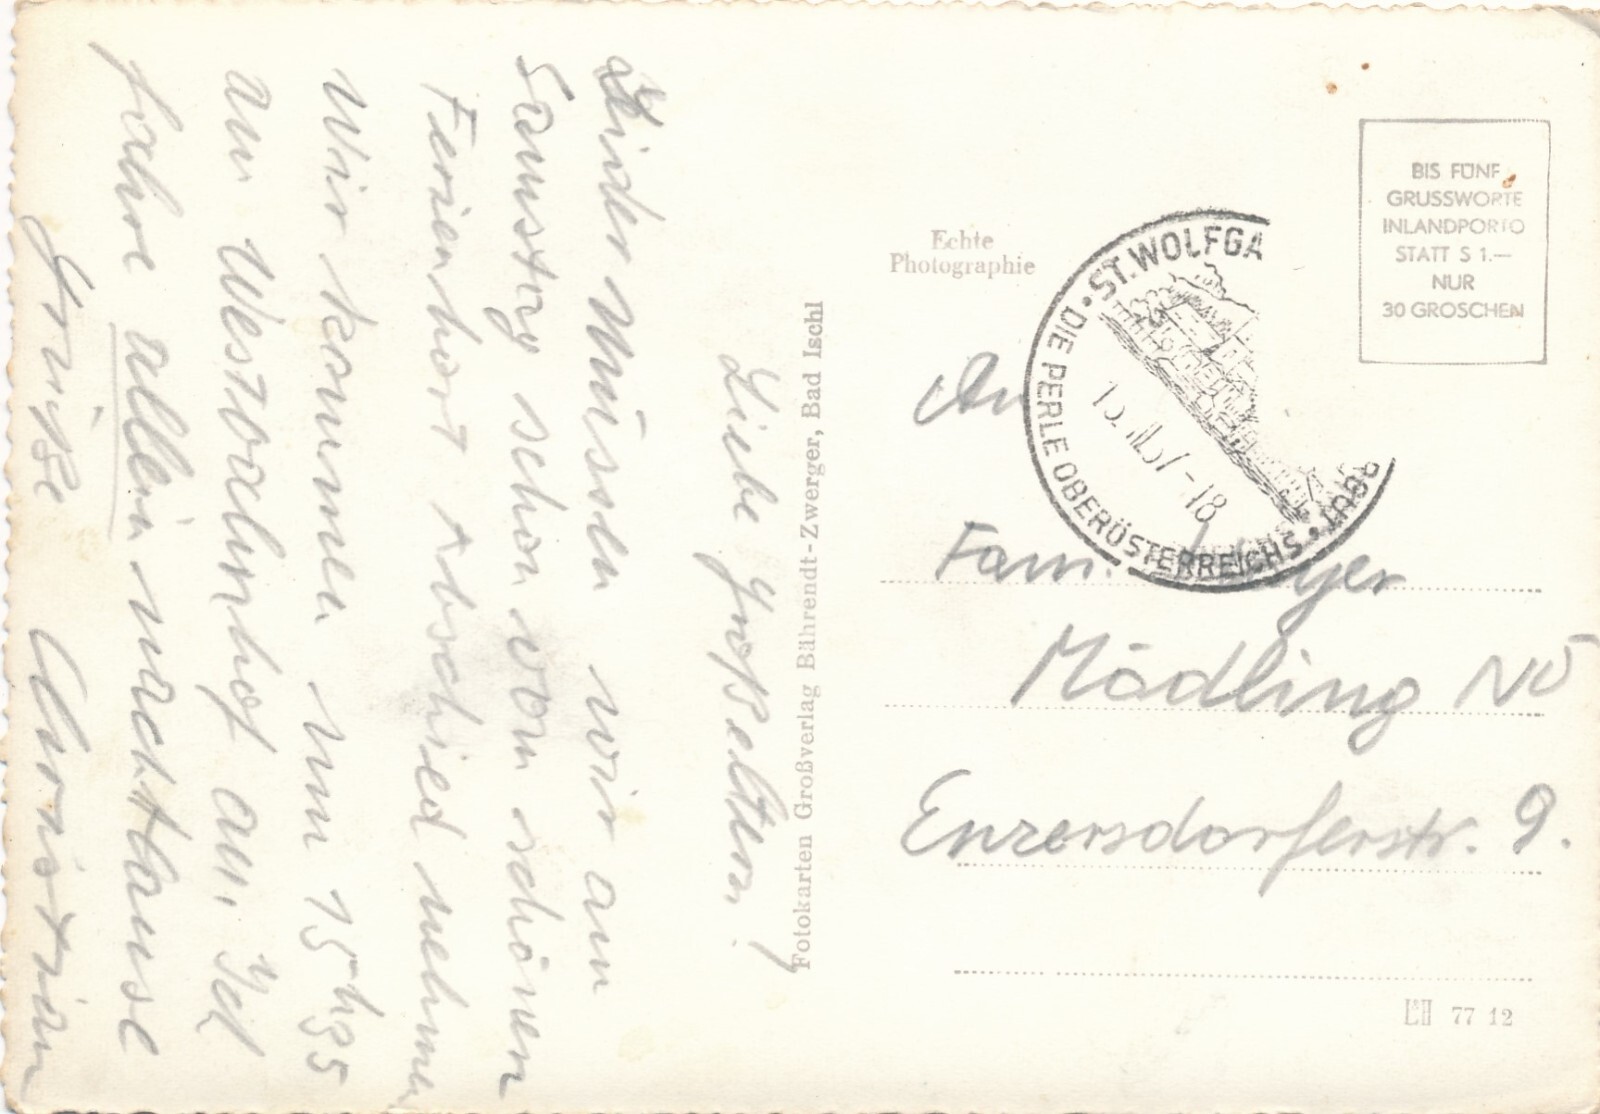 Liebe Großeltern!
Leider müssen wir am
Samstag schon vom schönen
Ferienhort Abschied nehmen
Wir kommen um 15h35
am Westbahnhof an. Ich
fahre allein nach Hause
Grüße Christian
Fotokarten Großverlag Bährendt-Zwerger, Bad Ischl
Echte
Photographie
BIS FÜNF
GRUSSWORTE
INLANDPORTO
STATT S 1.—
NUR
30 GROSCHEN
ST. WOLFGA
DIE PERLE OBERÖSTERREICHS
-18
An
Fam.
Mödling NÖ
Enzersdorferstr. 9.
77 12